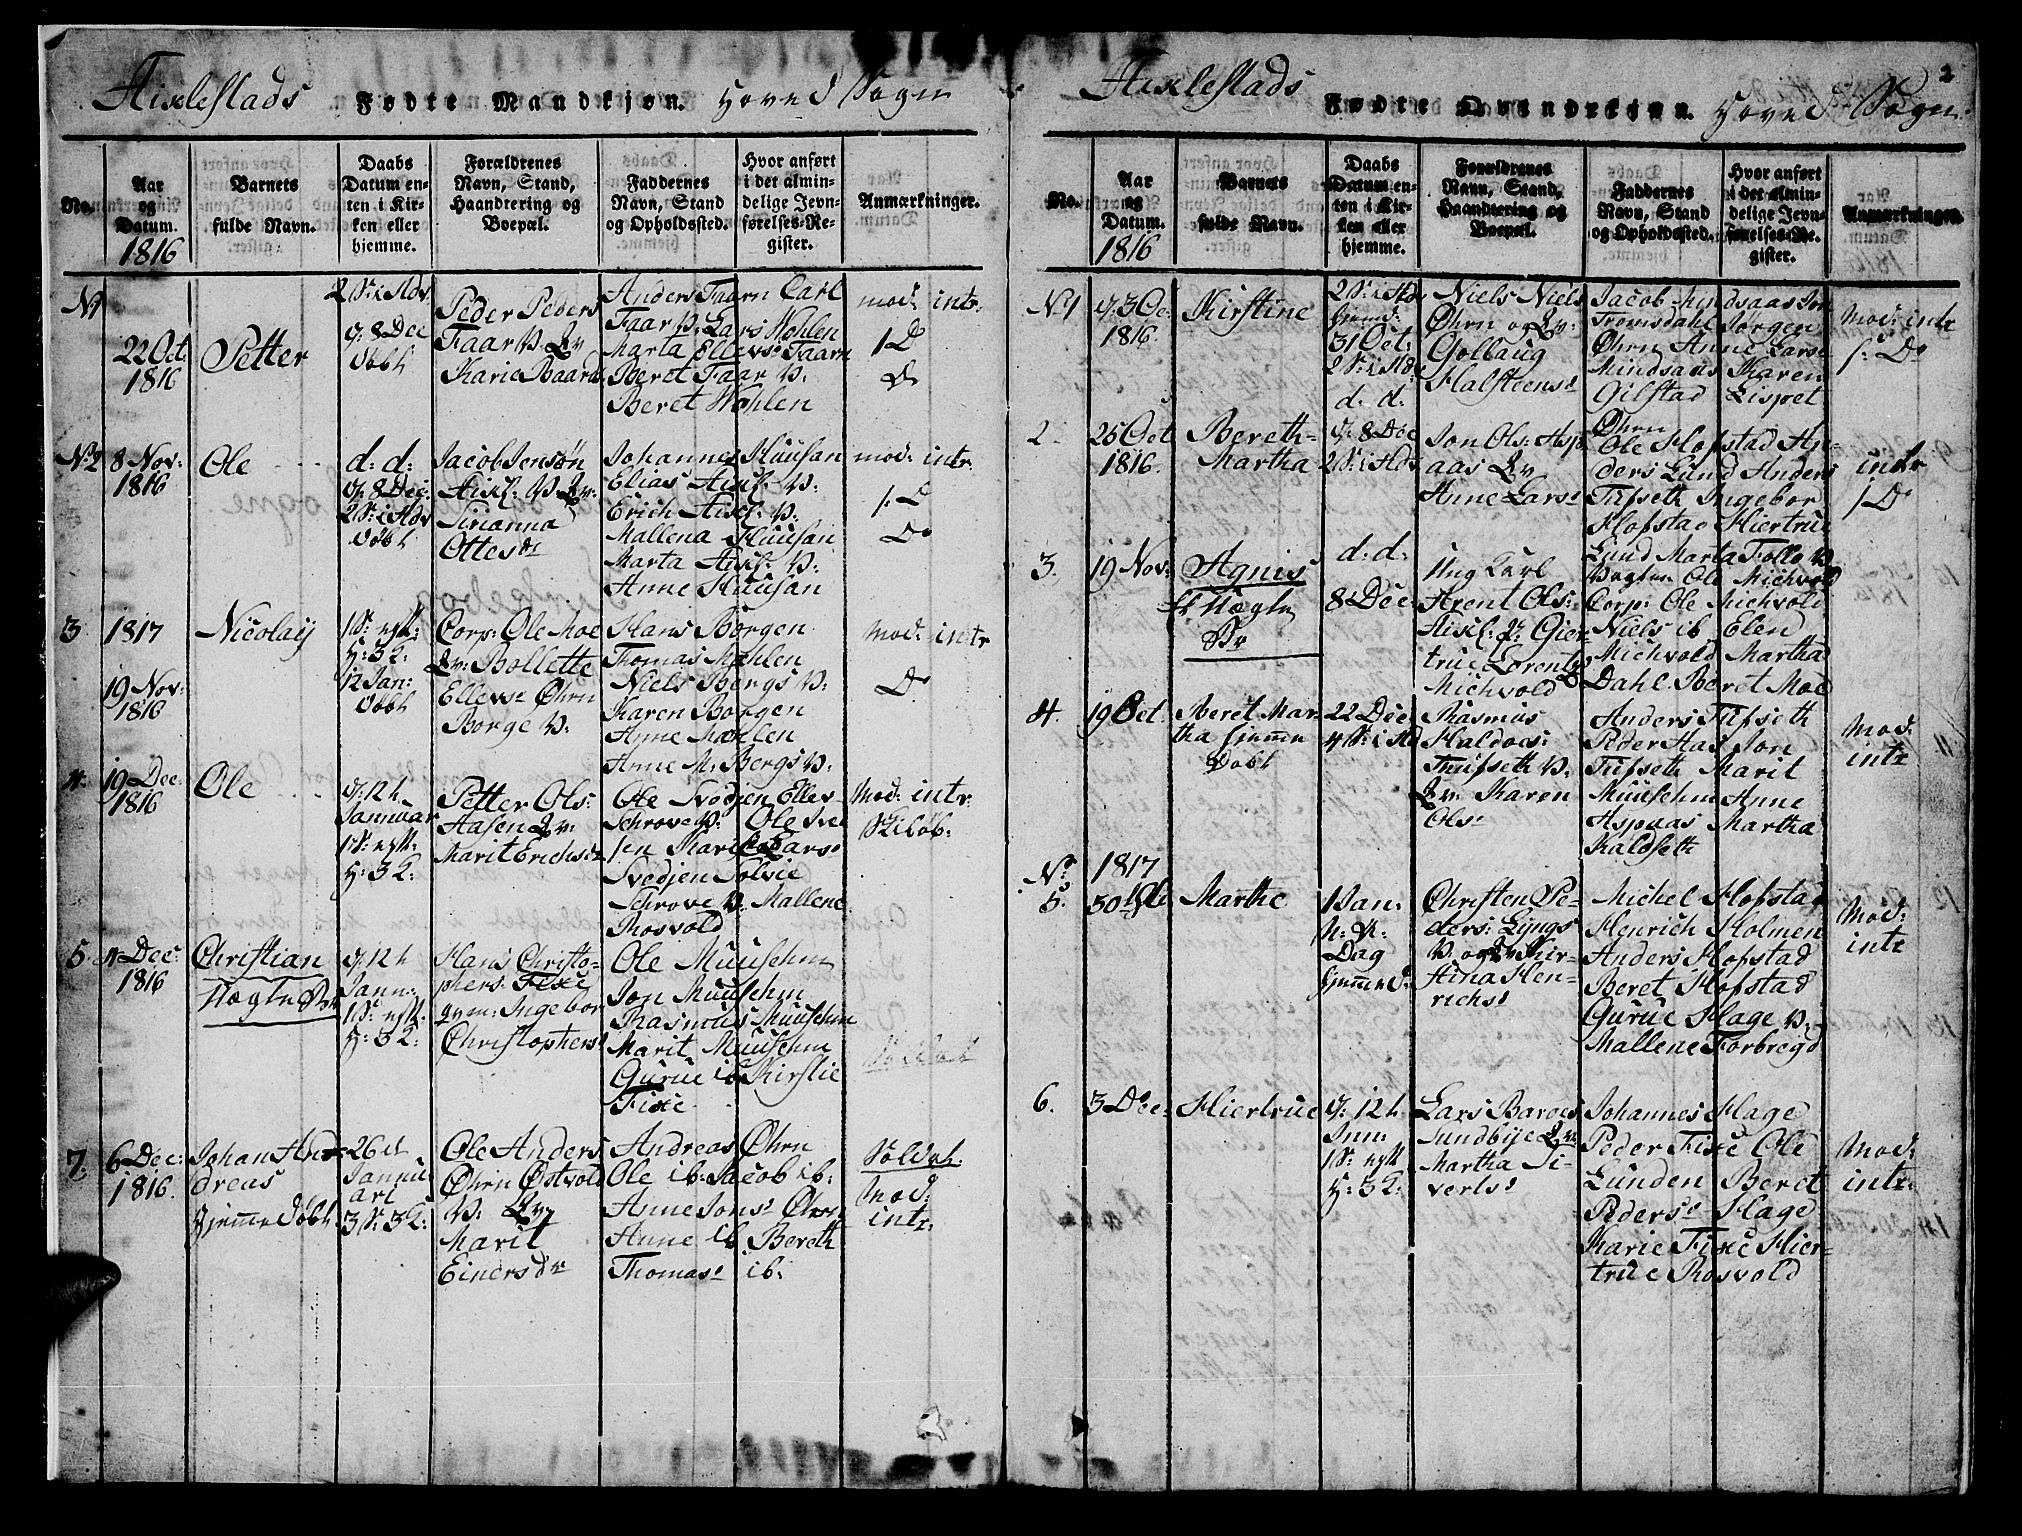 Aixlestads Fødte Mandkjøn. Hoved Sogn
No.
Aar
og
Datum.
1816
Barnets
fulde Navn.
Daabs
Datum en-
ten i Kir-
ken eller
hjemme.
Forældrenes
Navn, Stand,
Haandtering og
Boepæl.
Faddernes
Navn, Stand
og Opholdssted.
Hvor anført
i det almin-
delige Jevn-
førelses-Re-
gister.
Anmærkninger.
N1
22 Oct
1816
Petter
2 S: i Adv
d: 8 Dec
døbt
Peder Peders
Faar
Karie Baards
Anders Faarn Carl
Faar V: Lars Wohlen
Marta Ellevs: Faarn
Beret Faar V:
Beret Wohlen
mod: intr
1 D
D
N2
8 Nov:
1816
Ole
d: d:
d: 8 Dec:
2 S: i Adv
døbt
Jacob Jensøn
Aixl: V:
Sirianna
Ottesdr
Johannes Huusan
Elias Aixl: V:
Erich Aixl: V:
Mallena Huusan
Marta Aixl: V:
Anne Huusan
mod: intr
1: D
Do
3
1817
19 Nov:
1816
Nicolay
1 S: nytt:
H: 3 K:
12 Jan:
døbt
Corp: Ole Moe
Bollette
Ellevs Øhrn
Borge V:
Hans Borgen
Thomas Mohlen
Niels Bergs V:
Karen Borgen
Anne Mohlen
Anne M: Bergs V:
Mod: intr
Do
4.
19 Dec:
1816
Ole
d: 12 t
Januar
1 S: nytt:
H: 3 K:
Petter Ols:
Aasen
Marit Erichsdr
Ole Svedjen Ellev
Schrove V: Ole Sve
jen Marit Lars:
Svedjen Solvie
Schrove V: Mallene
Rosvold
Mod: intr.
5
4 Dec:
1816
Christian
Nægtn Dr
d: 12 t
Jann:
1 S: nytt.
H: 3 K:
Hans Christo-
phers: Fixe
qven: Ingebor
Christophers:
Ole Muusehm
Jon Muusehm
Rasmus Muusehm
Marit Muusehm
Gurue ib Kirstie
Fixe
7.
6 Dec:
1816.
Johan And
dreas
Hjemmedøbt
26 d
Januu
ari
3 S: 3 K:
Ole Anders
Øhrn Østvold
V:
Marit
Einersdr
Andreas Øhrn
Ole ib: Jacob ib:
Anne Jons: Øhrn
Anne ib Bereth
Thomas: ib:
Soldat.
Mod:
intr.
Aixlestads Fødte Qvindekjøn. Hoved Sogn
2
No.
Aar
og
Datum.
1816
Barnets
fulde Navn.
Daabs
Datum en-
ten i Kir-
ken eller
hjemme.
Forældrenes
Navn, Stand,
Haandtering og
Boepæl.
Faddernes
Navn, Stand
og Opholdssted.
Hvor anført
i det almin-
delige Jevn-
førelses-Re-
gister.
Anmærkninger.
N1
d. 3 Oc:
1816.
Kirstine
2 S: i Adv
31 Oct:
2 S: i Adv
Niels Niels
Øhrn og
Gollaug
Halsteens:
Jacob Mindsaas Jon
Tromsdahl Jørgen
Øhrn Anne Lars:
Mindsaas Karen
Gilstad Lispet
Øhrn
Mod: intr
1: Do
2.
25 Oct
1816.
Bereth-
Martha
d. d:
d: 8 Dec
2 S: i Adv
Jon Ols: Asp
aas
Anne Lars:
Ole Hofstad An-
ders Lund Anders
Tufseth Ingebor
Hofstad Hiertrue
Lund
intr
1 Do
3.
19 Nov:
Agnis
Nægtn
Dr
d: d:
8 Dec:
Ung Karl
Arent Ols:
Aixl: Gier
true Lorents
Michvold
Marta Follo
Ole Michvold
Corp: Ole Michvold
Niels ib Elen
Michvold Martha
Dahl Beret Moe
4.
19 Oct.
Beret Mar-
tha Hjemme
døbt
22 Dec
4 S: i Ad
Rasmus
Haldoes:
Tuufseth V:
Karen
Ols:
Anders Tufseth
Peder Aas Jon
Tufseth Marit
Muusehm Anne
Aspaas Martha
Kaldseth
Mod:
intr
No
5.
1817
Marthe
1 Jan:
Dag
Hjemme d:
Christen Pe-
ders: Lyngs
V: og Kir-
stina Hen-
richs:
Michel Hofstad
Henrich Holmen
Anders Hofstad
Beret Hofstad
Gurue Hage V:
Mallene Forbregd
Mod:
intr
6.
3 Dec:
Hiertrue
d: 12 t
Jnn:
1 S: nytt
H: 3 K:
Lars Baroes
Sundbye
Martha Si-
verts:
Johannes Hage
Peder Fixe Ole
Lunden Beret
Peders: Hage
Karie Fixe Hier-
true Rosvold
Mod:
intr.